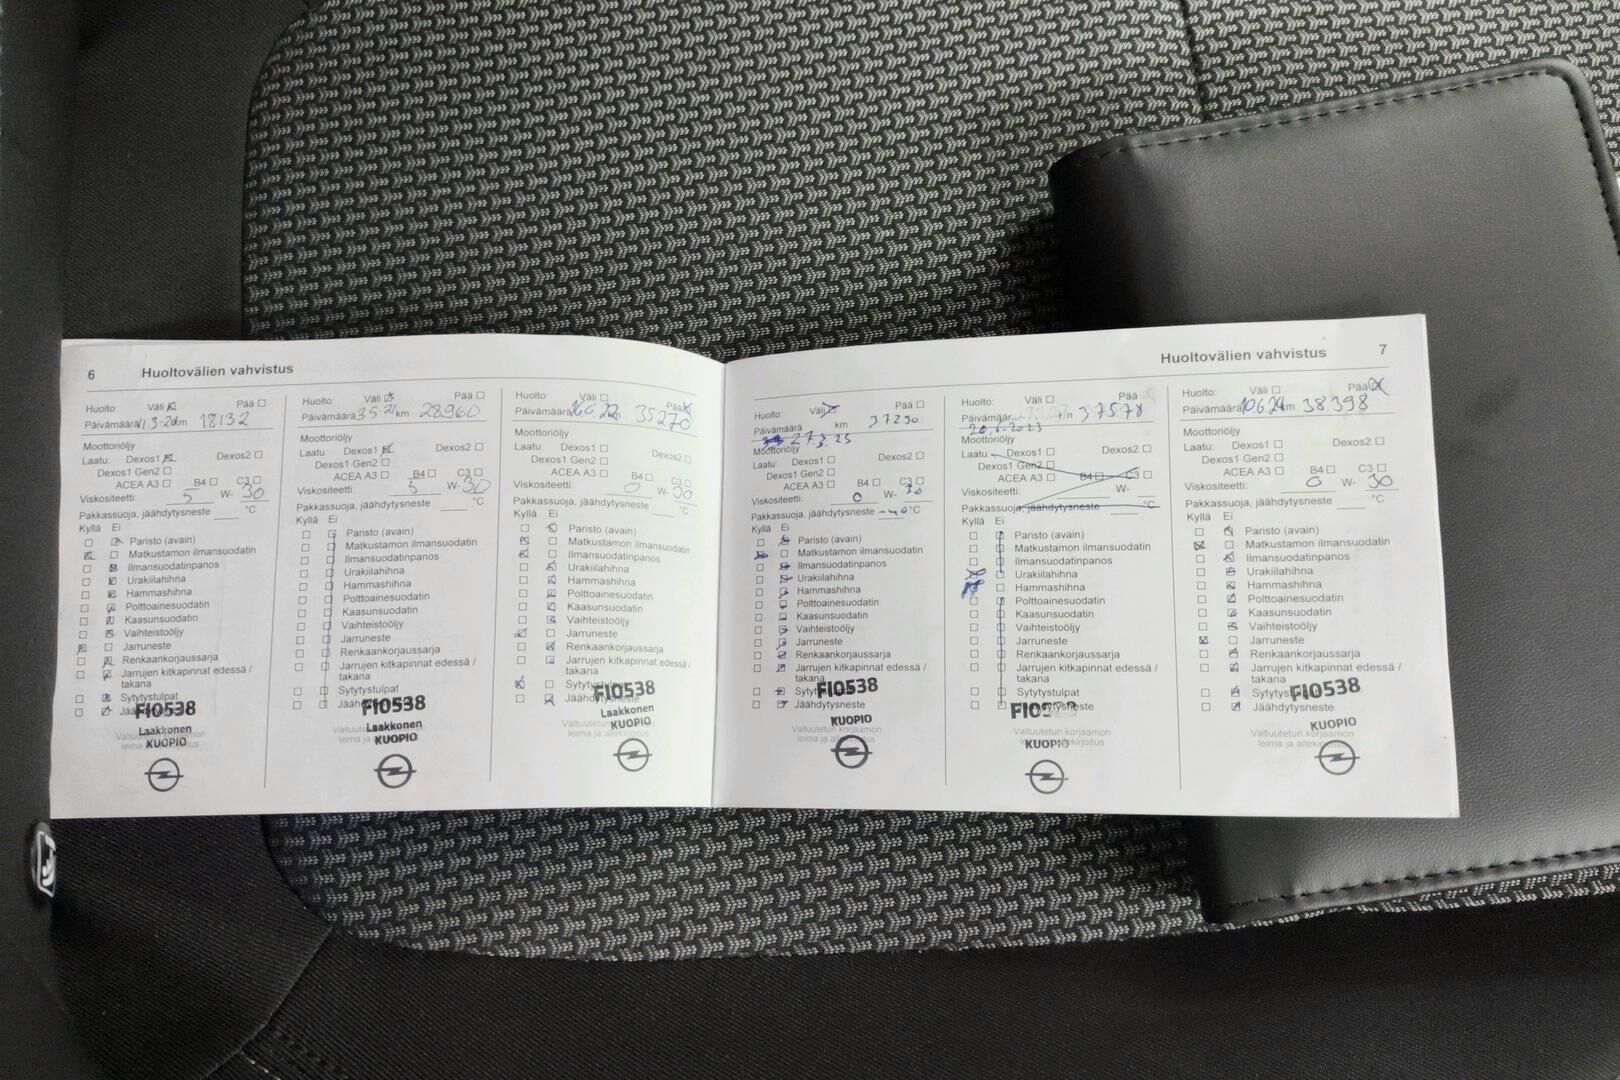 6 Huoltovälien vahvistus
Huolto: Väli ☒ Pää ☐
Päivämäärä 11.3-20 km 18132
Moottoriöljy
Laatu: Dexos1 ☒ Dexos2 ☐
Dexos1 Gen2 ☐
ACEA A3 ☐ B4 ☐ C3 ☐
Viskositeetti: 5 W- 30
Pakkassuoja, jäähdytysneste ____ °C
Kyllä Ei
☐ ☒ Paristo (avain)
☒ ☐ Matkustamon ilmansuodatin
☐ ☒ Ilmansuodatinpanos
☐ ☒ Urakiilahihna
☐ ☒ Hammashihna
☐ ☒ Polttoainesuodatin
☐ ☒ Kaasunsuodatin
☐ ☒ Vaihteistoöljy
☒ ☐ Jarruneste
☐ ☒ Renkaankorjaussarja
☐ ☒ Jarrujen kitkapinnat edessä /
takana
☐ ☒ Sytytystulpat
☐ ☒
FI0538
Laakkonen
KUOPIO
Huolto: Väli ☒ Pää ☐
Päivämäärä 3-5-21 km 28960
Moottoriöljy
Laatu: Dexos1 ☒ Dexos2 ☐
Dexos1 Gen2 ☐
ACEA A3 ☐ B4 ☐ C3 ☐
Viskositeetti: 5 W- 30
Pakkassuoja, jäähdytysneste ____ °C
Kyllä Ei
☐ ☐ Paristo (avain)
☐ ☐ Matkustamon ilmansuodatin
☐ ☐ Ilmansuodatinpanos
☐ ☐ Urakiilahihna
☐ ☐ Hammashihna
☐ ☐ Polttoainesuodatin
☐ ☐ Kaasunsuodatin
☐ ☐ Vaihteistoöljy
☐ ☐ Jarruneste
☐ ☐ Renkaankorjaussarja
☐ ☐ Jarrujen kitkapinnat edessä /
takana
☐ ☐ Sytytystulpat
☐ ☐
FI0538
Laakkonen
KUOPIO
Huolto: Väli ☐ Pää ☒
Päivämäärä km 35270
Moottoriöljy
Laatu: Dexos1 ☐ Dexos2 ☐
Dexos1 Gen2 ☐
ACEA A3 ☐ B4 ☐ C3 ☐
Viskositeetti: 0 W- 30
Pakkassuoja, jäähdytysneste ____ °C
Kyllä Ei
☐ ☒ Paristo (avain)
☒ ☐ Matkustamon ilmansuodatin
☒ ☐ Ilmansuodatinpanos
☐ ☒ Urakiilahihna
☐ ☒ Hammashihna
☐ ☒ Polttoainesuodatin
☐ ☒ Kaasunsuodatin
☐ ☒ Vaihteistoöljy
☒ ☐ Jarruneste
☐ ☒ Renkaankorjaussarja
☐ ☒ Jarrujen kitkapinnat edessä /
takana
☒ ☐ Sytytystulpat
☐ ☒ Jäähdytysneste
FI0538
Laakkonen
KUOPIO
Huoltovälien vahvistus 7
Huolto: Väli ☒ Pää ☐
Päivämäärä km 37290
27.3.23
Moottoriöljy
Laatu: Dexos1 ☐ Dexos2 ☐
Dexos1 Gen2 ☐
ACEA A3 ☐ B4 ☐ C3 ☐
Viskositeetti: 0 W- 30
Pakkassuoja, jäähdytysneste -40 °C
Kyllä Ei
☐ ☒ Paristo (avain)
☒ ☐ Matkustamon ilmansuodatin
☐ ☒ Ilmansuodatinpanos
☐ ☒ Urakiilahihna
☐ ☒ Hammashihna
☐ ☒ Polttoainesuodatin
☐ ☒ Kaasunsuodatin
☐ ☒ Vaihteistoöljy
☐ ☒ Jarruneste
☐ ☒ Renkaankorjaussarja
☐ ☒ Jarrujen kitkapinnat edessä /
takana
☐ ☒ Sytytystulpat
☐ ☒ Jäähdytysneste
FI0538
KUOPIO
Huolto: Väli ☐ Pää ☐
Päivämäärä km 37578
20.6.2023
Moottoriöljy
Laatu: Dexos1 ☐ Dexos2 ☐
Dexos1 Gen2 ☐
ACEA A3 ☐ B4 ☐ C3 ☐
Viskositeetti: ____ W- ____
Pakkassuoja, jäähdytysneste ____ °C
Kyllä Ei
☐ ☐ Paristo (avain)
☐ ☐ Matkustamon ilmansuodatin
☐ ☐ Ilmansuodatinpanos
☒ ☐ Urakiilahihna
☒ ☐ Hammashihna
☐ ☐ Polttoainesuodatin
☐ ☐ Kaasunsuodatin
☐ ☐ Vaihteistoöljy
☐ ☐ Jarruneste
☐ ☐ Renkaankorjaussarja
☐ ☐ Jarrujen kitkapinnat edessä /
takana
☐ ☐ Sytytystulpat
☐ ☐ Jäähdytysneste
Valtuutetun korjaamon
leima ja allekirjoitus
KUOPIO
Huolto: Väli ☐ Pää ☒
Päivämäärä 10.6.24 km 38398
Moottoriöljy
Laatu: Dexos1 ☐ Dexos2 ☐
Dexos1 Gen2 ☐
ACEA A3 ☐ B4 ☐ C3 ☐
Viskositeetti: 0 W- 30
Pakkassuoja, jäähdytysneste ____ °C
Kyllä Ei
☐ ☒ Paristo (avain)
☒ ☐ Matkustamon ilmansuodatin
☐ ☒ Ilmansuodatinpanos
☐ ☒ Urakiilahihna
☐ ☒ Hammashihna
☐ ☒ Polttoainesuodatin
☐ ☒ Kaasunsuodatin
☐ ☒ Vaihteistoöljy
☒ ☐ Jarruneste
☐ ☒ Renkaankorjaussarja
☐ ☒ Jarrujen kitkapinnat edessä /
takana
☐ ☒ Sytytystulpat
☐ ☒ Jäähdytysneste
FI0538
KUOPIO
Valtuutetun korjaamon
leima ja allekirjoitus